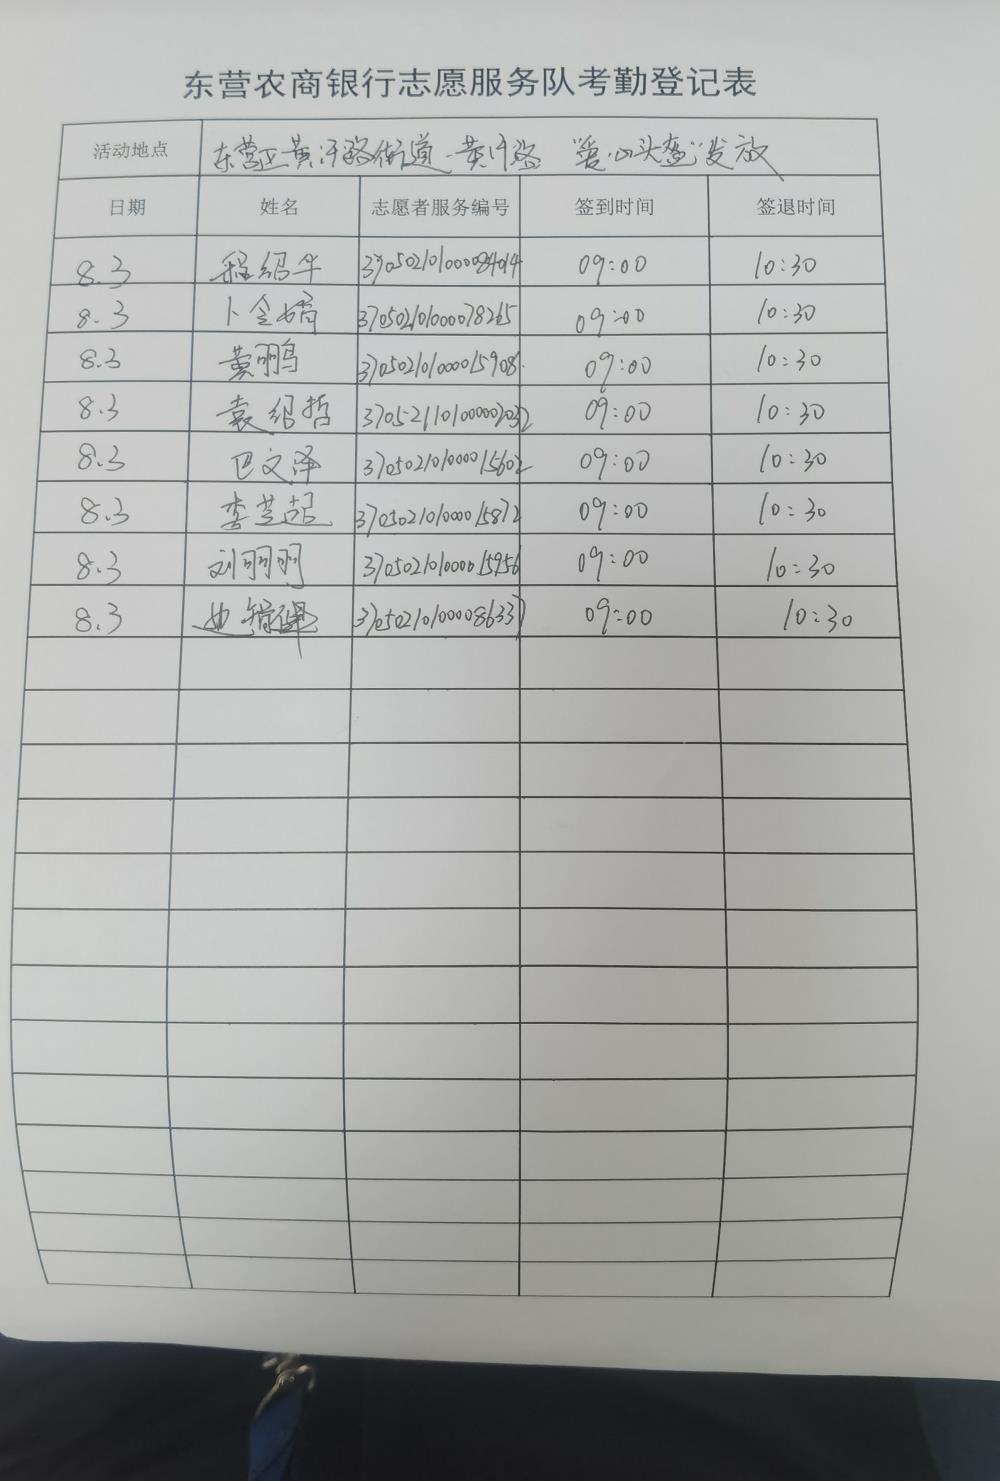 东营农商银行志愿服务队考勤登记表
活动地点 东营区黄河路街道黄河路 "爱心头盔"发放
日期 姓名 志愿者服务编号 签到时间 签退时间
8.3 程绍华 09:00 10:30
8.3 卜令娟 3705021010000078265 09:00 10:30
8.3 黄鹏 370502101000015908 09:00 10:30
8.3 袁绍哲 09:00 10:30
8.3 巴文泽 370502101000015602 09:00 10:30
8.3 李芝超 370502101000015872 09:00 10:30
8.3 刘明明 370502101000015956 09:00 10:30
8.3 09:00 10:30